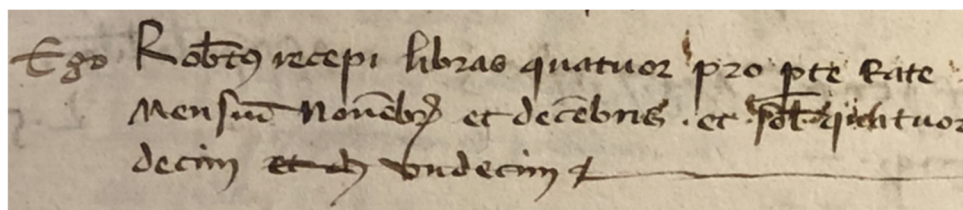 Ego Rob̅tꝰ recepi libras quatuor pro p̱te Rate
Mensiu̅ Nouē̅brꝭ et decēbris . et sol̅ quatuor
decim et d̅ undecim